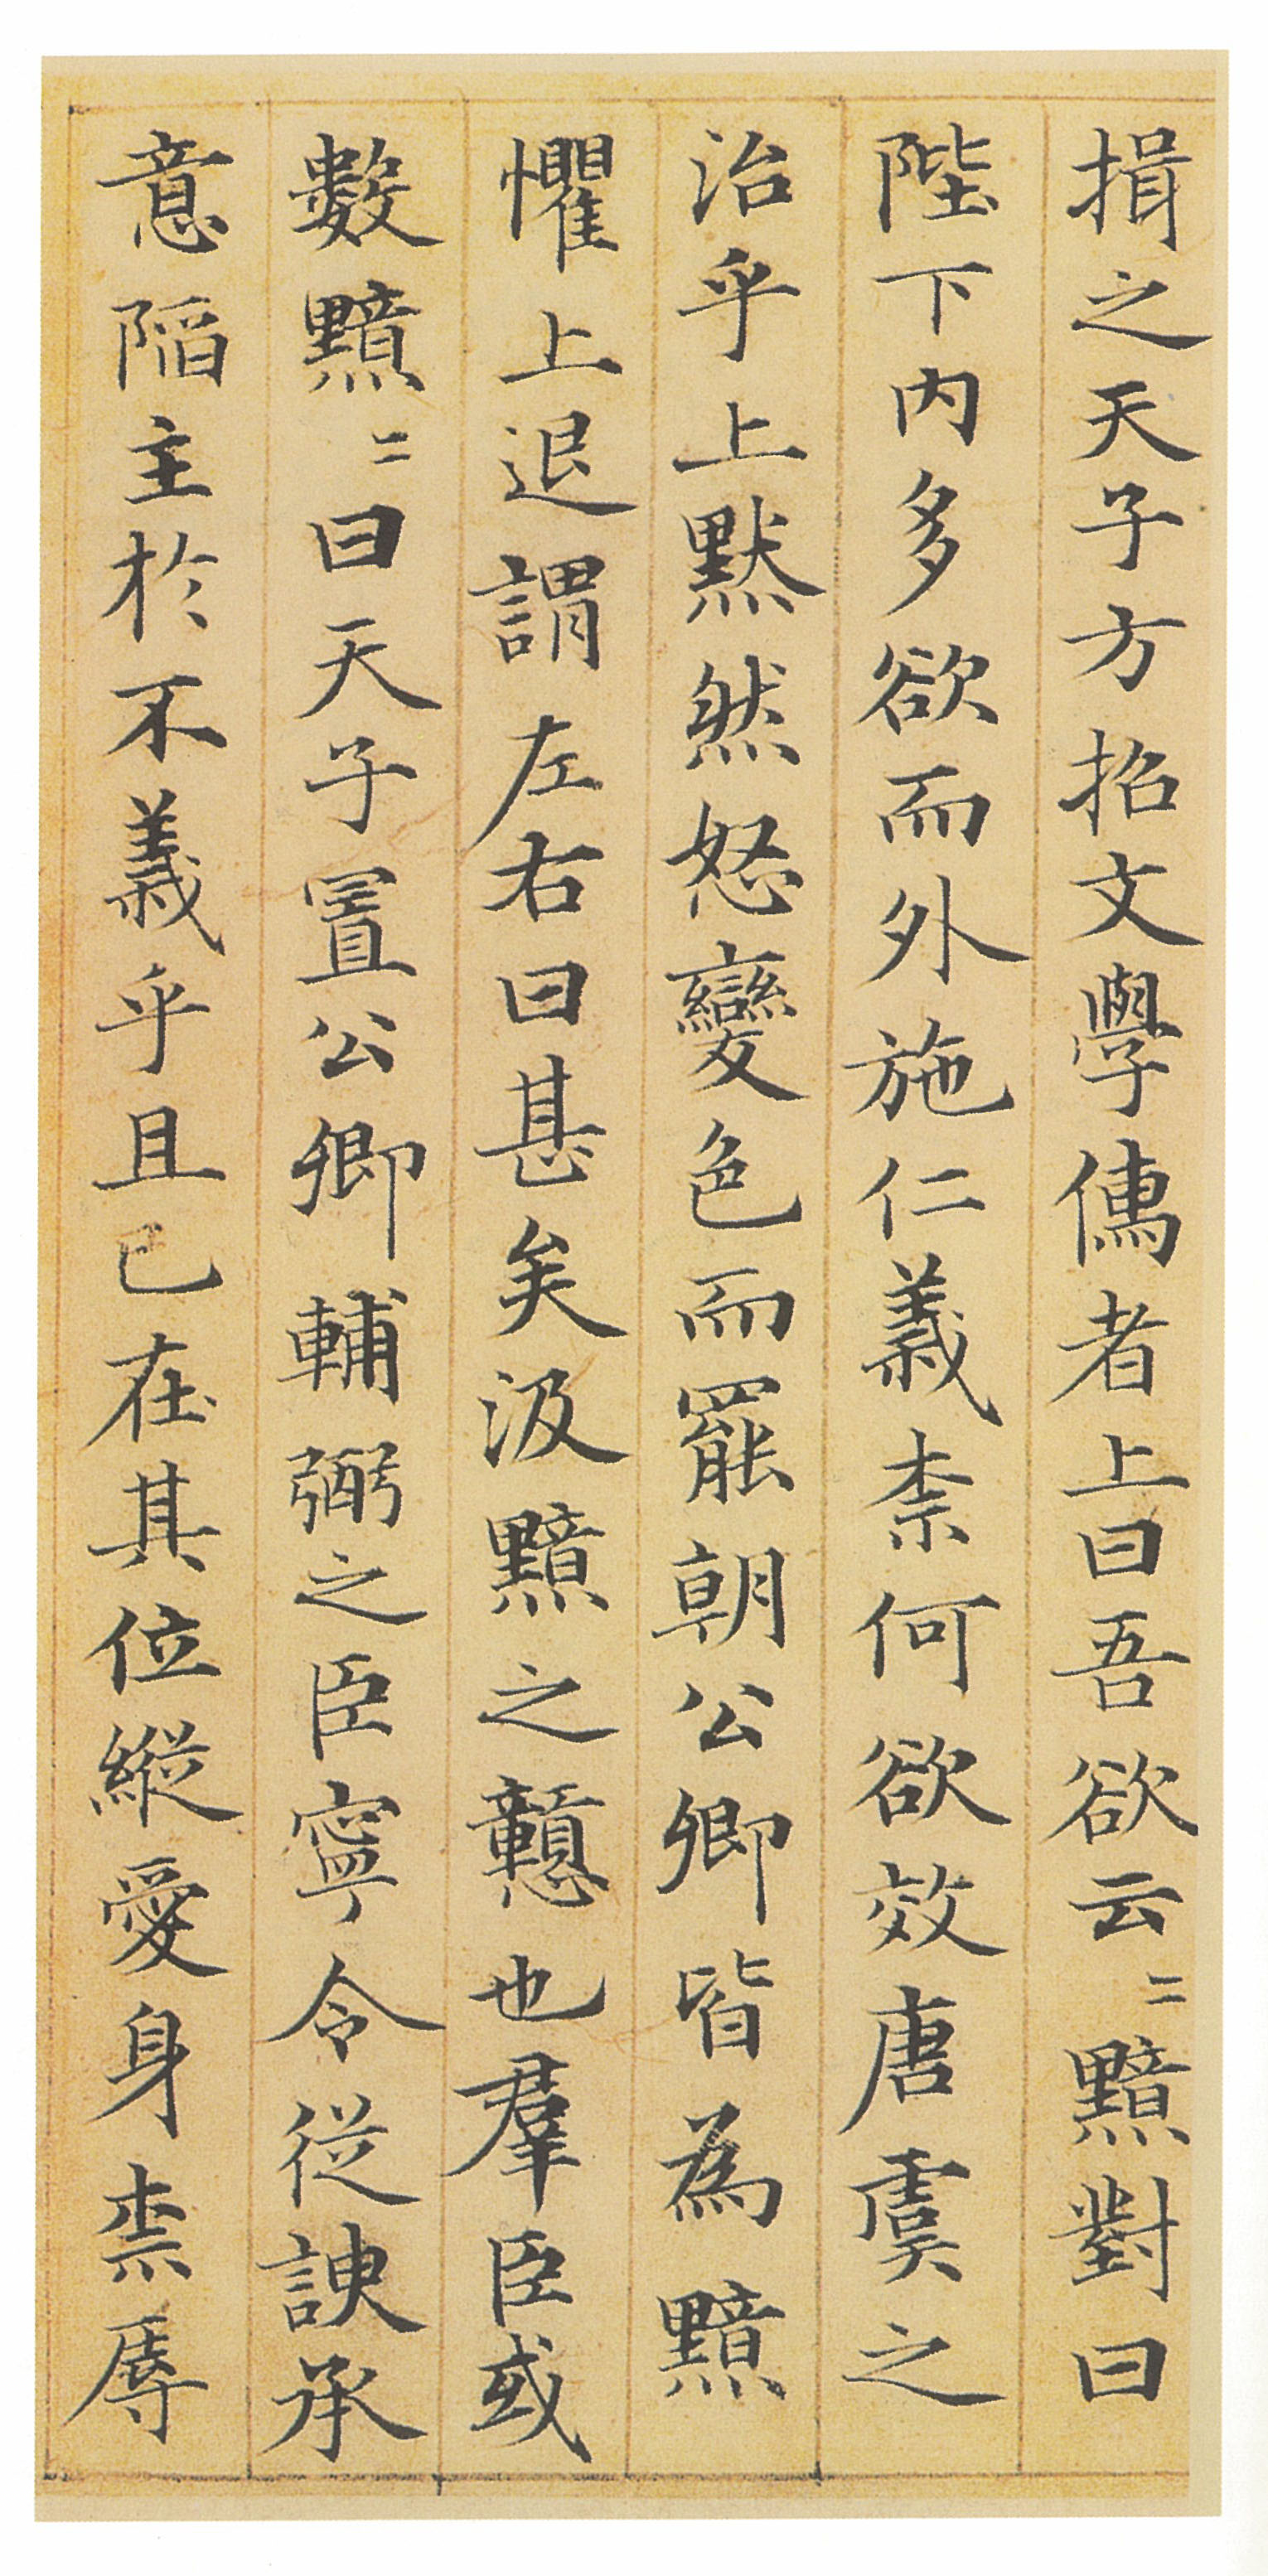 揖之天子方招文學儁者上曰吾欲云〻黯對曰
陛下內多欲而外施仁義柰何欲效唐虞之
治乎上黙然怒變色而罷朝公卿皆為黯
懼上退謂左右曰甚矣汲黯之戇也羣臣或
數黯〻曰天子置公卿輔弼之臣寧令從諛承
意陷主於不義乎且已在其位縱愛身柰辱